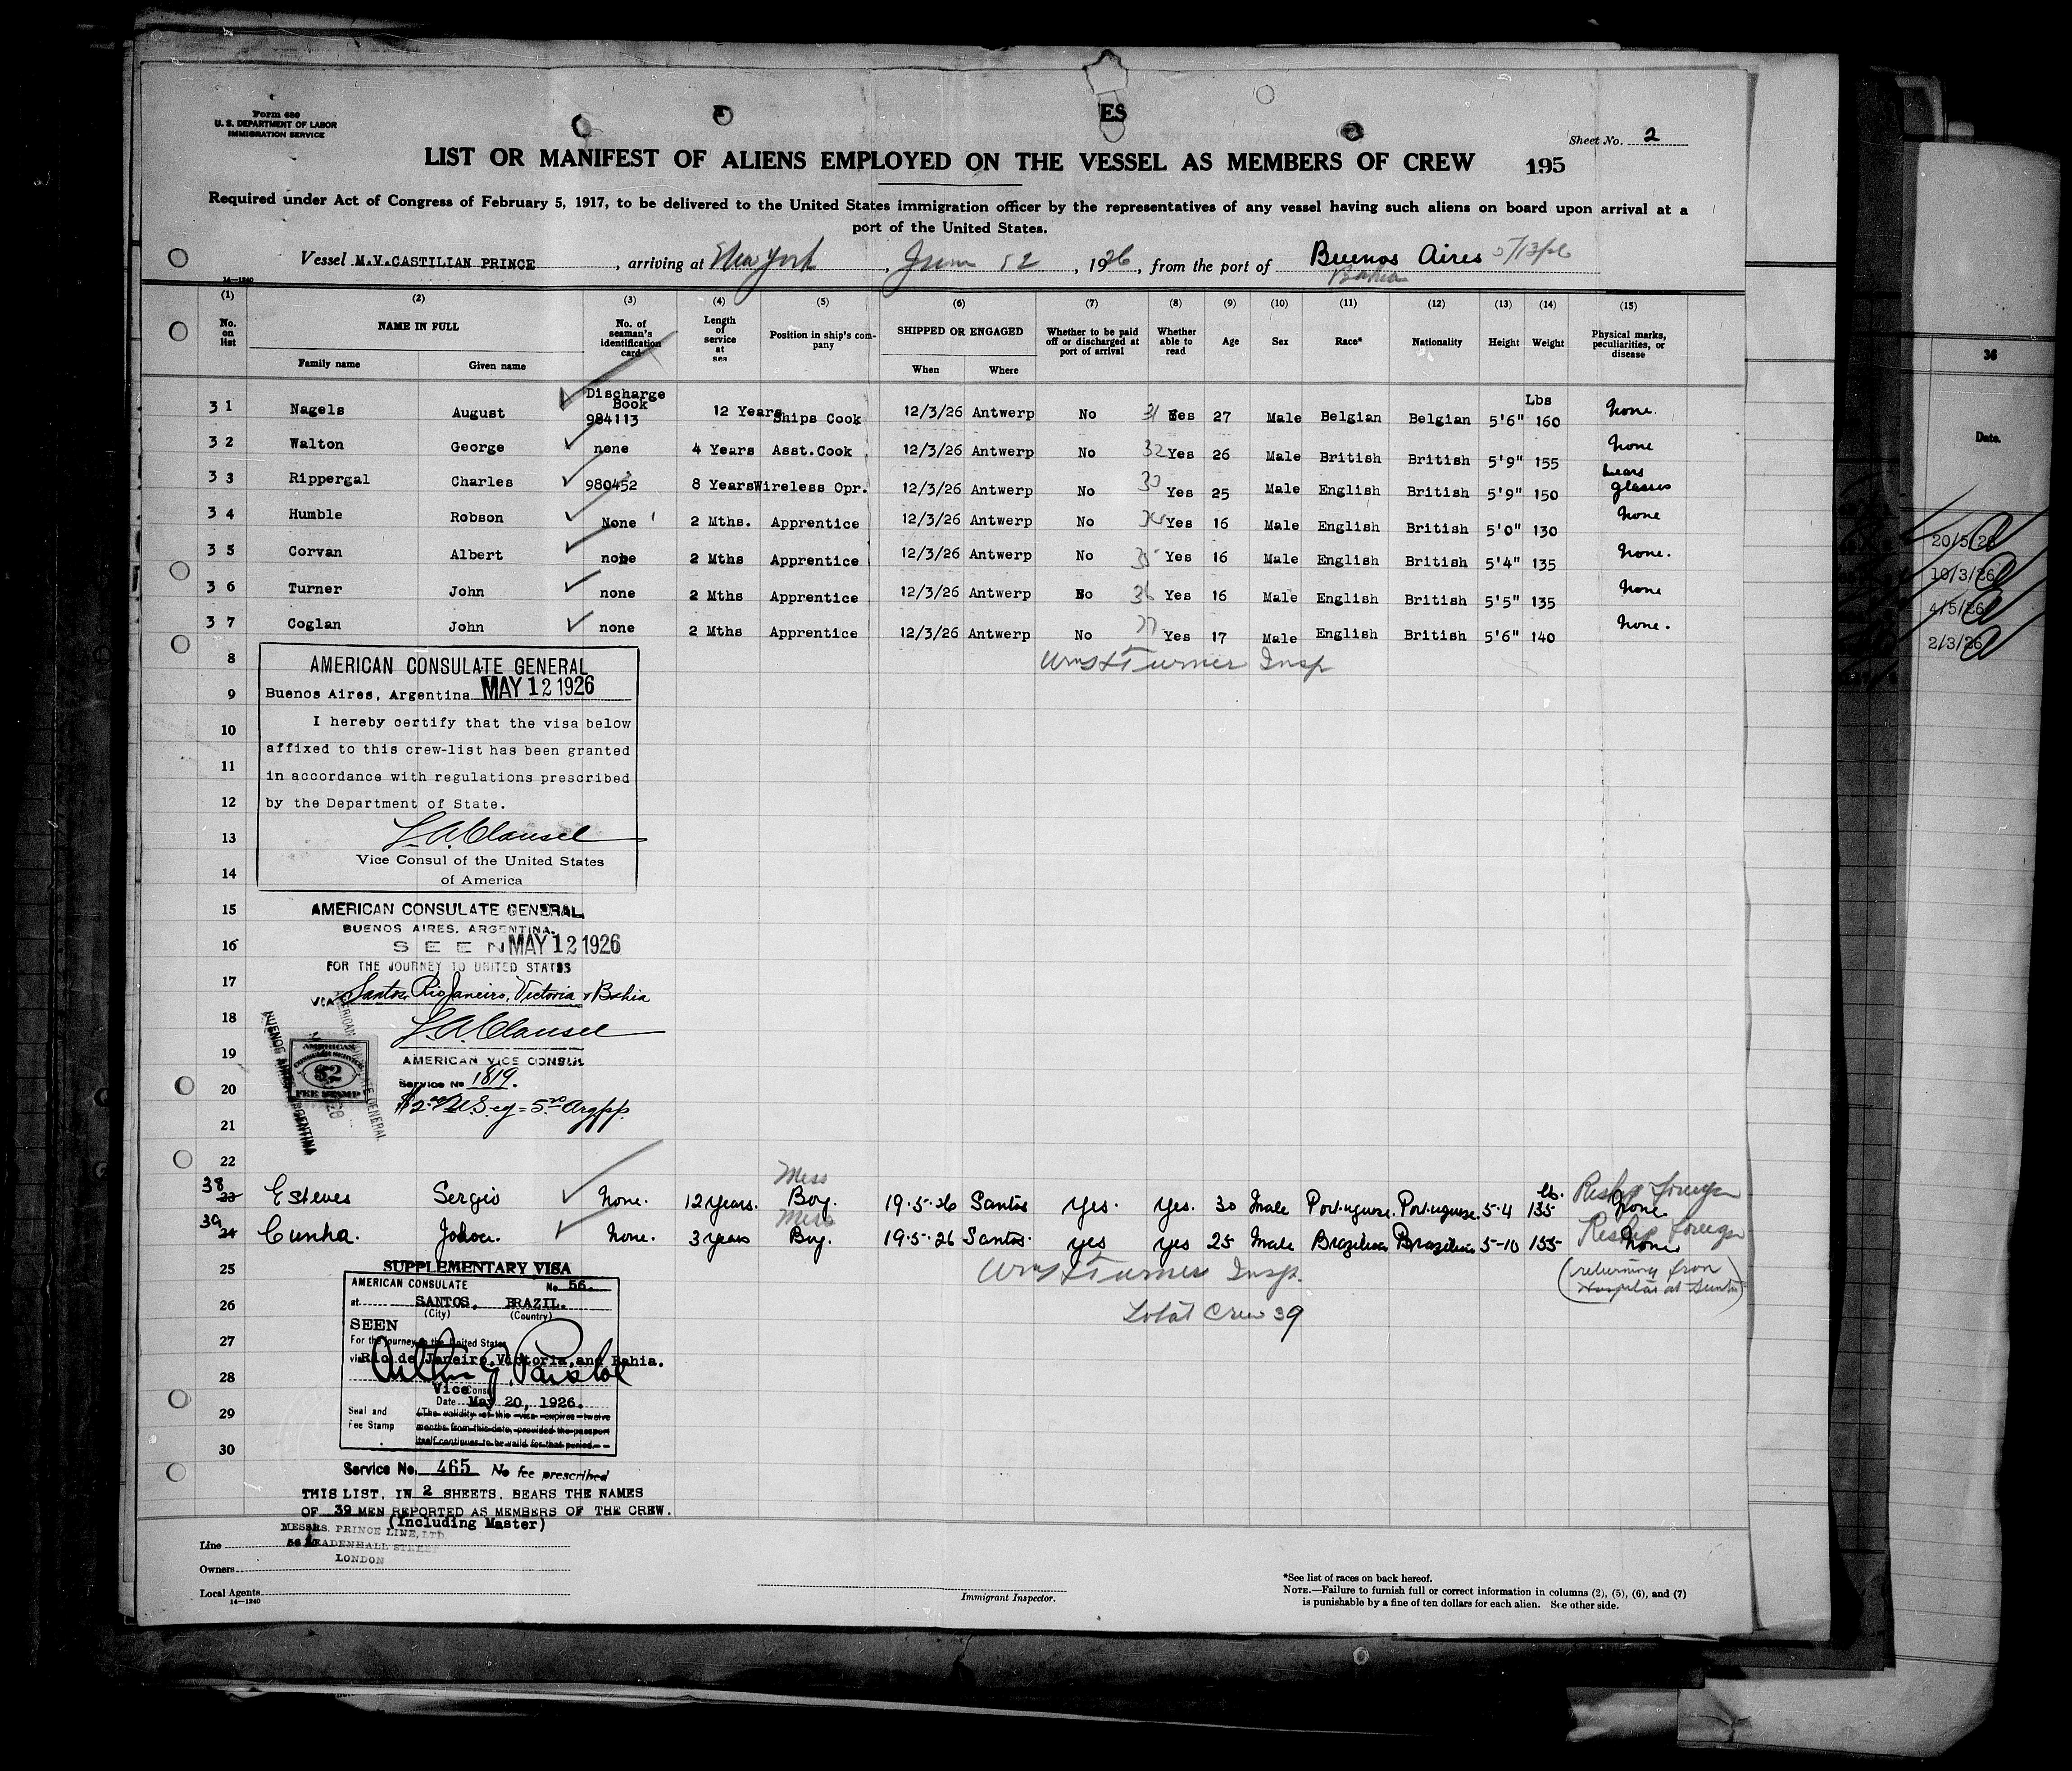 Form 680
U. S. DEPARTMENT OF LABOR
IMMIGRATION SERVICE
ES
Sheet No. 2
LIST OR MANIFEST OF ALIENS EMPLOYED ON THE VESSEL AS MEMBERS OF CREW 195
Required under Act of Congress of February 5, 1917, to be delivered to the United States immigration officer by the representatives of any vessel having such aliens on board upon arrival at a
port of the United States.
Vessel M.V.CASTILIAN PRINCE, arriving at New York, June 12, 1926, from the port of Buenos Aires 5/13/26
Bahia
14—1240
(1) (2) (3) (4) (5) (6) (7) (8) (9) (10) (11) (12) (13) (14) (15)
No. on list NAME IN FULL Family name Given name No. of seaman's identification card Length of service at sea Position in ship's company SHIPPED OR ENGAGED When Where Whether to be paid off or discharged at port of arrival Whether able to read Age Sex Race* Nationality Height Weight Physical marks, peculiarities, or disease
31 Nagels August Discharge Book 984113 12 Years Ships Cook 12/3/26 Antwerp No 31 Yes 27 Male Belgian Belgian 5'6" Lbs 160 None.
32 Walton George none 4 Years Asst.Cook 12/3/26 Antwerp No 32 Yes 26 Male British British 5'9" 155 None
33 Rippergal Charles 980452 8 Years Wireless Opr. 12/3/26 Antwerp No 33 Yes 25 Male English British 5'9" 150 wears glasses
34 Humble Robson None 2 Mths. Apprentice 12/3/26 Antwerp No 34 Yes 16 Male English British 5'0" 130 None
35 Corvan Albert none 2 Mths Apprentice 12/3/26 Antwerp No 35 Yes 16 Male English British 5'4" 135 None.
36 Turner John none 2 Mths Apprentice 12/3/26 Antwerp No 36 Yes 16 Male English British 5'5" 135 None
37 Coglan John none 2 Mths Apprentice 12/3/26 Antwerp No 37 Yes 17 Male English British 5'6" 140 None.
8
Turner Insp
AMERICAN CONSULATE GENERAL
9
Buenos Aires, Argentina MAY 12 1926
10
I hereby certify that the visa below
affixed to this crew-list has been granted
11
in accordance with regulations prescribed
12
by the Department of State.
13
L.A. Clausel
Vice Consul of the United States
14
of America
15
AMERICAN CONSULATE GENERAL
BUENOS AIRES, ARGENTINA.
16
SEEN MAY 12 1926
FOR THE JOURNEY TO UNITED STATES
17
VIA Santos, Rio Janeiro, Victoria & Bahia
18
L.A. Clausel
19
AMERICAN VICE CONSUL
Service No 1819.
20
$2.00 U.S. eq = 5.00 Arg pp.
21
AMERICAN
CONSULAR SERVICE
$2
FEE STAMP
BUENOS AIRES ARGENTINA
22
38 23 Esteves Sergio None. 12 years. Mess Boy. 19-5-26 Santos yes. yes. 30 Male Portuguese. Portuguese. 5-4 lb. 135 None. Reship foreign
39 24 Cunha. None. 3 years Mess Boy. 19-5-26 Santos. yes yes 25 Male Brazilian Brazilian 5-10 155 None Reship foreign
(returning from
Hospital at Santos)
25
Turner Insp.
SUPPLEMENTARY VISA
AMERICAN CONSULATE No. 56.
26
at SANTOS, BRAZIL.
(City) (Country)
Total Crew 39
SEEN
27
For the journey to the United States
via Rio de Janeiro, Victoria, and Bahia.
28
Vice Consul
Date May 20, 1926.
29
Seal and
Fee Stamp
(The validity of this visa expires twelve
months from this date, provided the passport
itself continues to be valid for that period.
30
Service No. 465 No fee prescribed
THIS LIST, IN 2 SHEETS, BEARS THE NAMES
OF 39 MEN REPORTED AS MEMBERS OF THE CREW.
(Including Master)
MESSRS. PRINCE LINE, LTD.
Line
56 LEADENHALL STREET
LONDON
Owners
Local Agents
14—1240
Immigrant Inspector.
*See list of races on back hereof.
NOTE.—Failure to furnish full or correct information in columns (2), (5), (6), and (7)
is punishable by a fine of ten dollars for each alien. See other side.
36
Date.
20/5/26
10/3/26
4/5/26
2/3/26